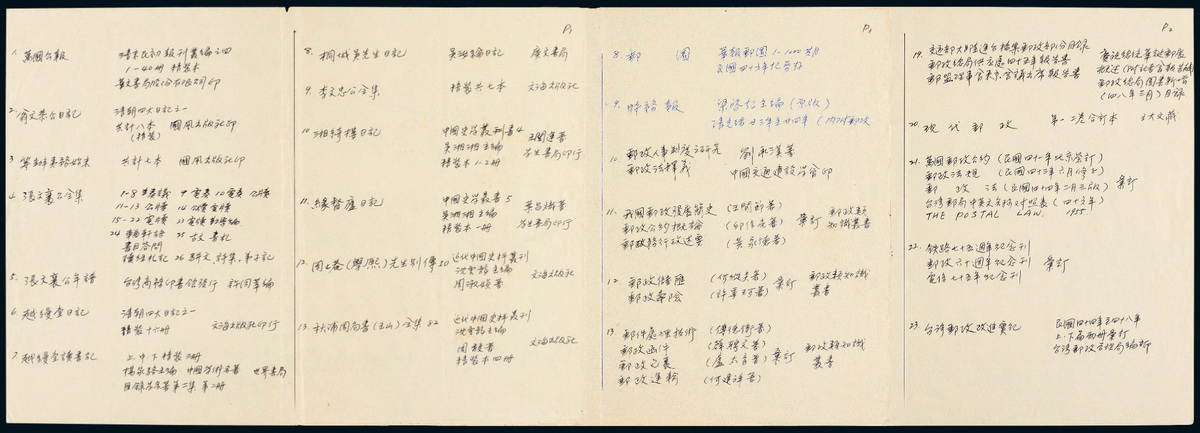 1. 萬國公報 清末民初報刊叢編之四
1-40冊 精裝本
華文書局股份有限公司印
2. 翁文恭公日記 清朝四大日記之一
共計八本 國風出版社印
(精裝)
3. 籌辦夷務始末 共計七本 國風出版社印
4. 張文襄公全集 1-8 奏議 9 電奏 10 電奏 公牘
11-13 公牘 14 公牘 電牘
15-22 電牘 23 電牘 勸學編
24 輶軒語 25 古文 書札
書目答問
26 駢文、詩集、弟子記
5. 張文襄公年譜 台灣商務印書館發行 許同莘編
6. 越縵堂日記 清朝四大日記之一
精裝十六冊 文海出版社印行
7. 越縵堂讀書記 上中下精裝三冊
楊家駱主編 中國學術名著 世界書局
目錄學名著第二集 第二冊
P1
8. 桐城吳先生日記 吳汝綸日記 廣文書局
9. 李文忠公全集 精裝共七本 文海出版社
10. 湘綺樓日記 中國史學叢刊書4 王闓運著
吳湘湘主編 學生書局印行
精裝本1-2冊
11. 緣督廬日記 中國史學叢書5 葉昌熾著
吳湘湘主編 學生書局印行
精裝本一冊
12. 周止菴(學熙)先生別傳 20 近代中國史料叢刊
沈雲龍主編 文海出版社
周叔媜著
13. 秋浦周尚書(玉山)全集 82 近代中國史料叢刊
沈雲龍主編 文海出版社
周馥著
精裝本四冊
P1
8. 郵 園 第1-1000期
民國四十五年
9. 時務報 梁啓超主編 (原版)
清光緒廿三年至廿四年 (內附郵政
10. 郵政人事制度之研究 劉承漢著
郵政法釋義 中國交通建設學會印
11. 我國郵政發展簡史 (王開節著)
郵政公約概論 彙訂 郵政類知識叢書
郵政
12. 郵政儲匯 彙訂 郵政類知識
郵政壽險 叢書
13. 郵件處理技術
郵政函件 (薛聘文著) 郵政類知識
郵政包裹 彙訂 叢書
郵政運輸
P2
19. 交通部大陸運台檔案郵政部分目錄
郵政總局供應處四十五年報告書
(四八年三月) 目錄
20. 現代郵政 第一二卷合訂本
21. 萬國郵政公約 (民國四十一年北京簽訂)
郵政法規 (民國四十三年六月修正)
郵 政 法 (民國四十四年二月三版) 彙訂
台灣郵局中英文名稱對照表 (四十六年)
THE POSTAL LAW. 1955
22. 鐵路七十五週年紀念刊
郵政六十週年紀念刊 彙訂
電信七十五年紀念刊
23. 台灣郵政改進實記 民國四十四年至四十八年
上、下兩冊彙訂
台灣郵政管理局編印